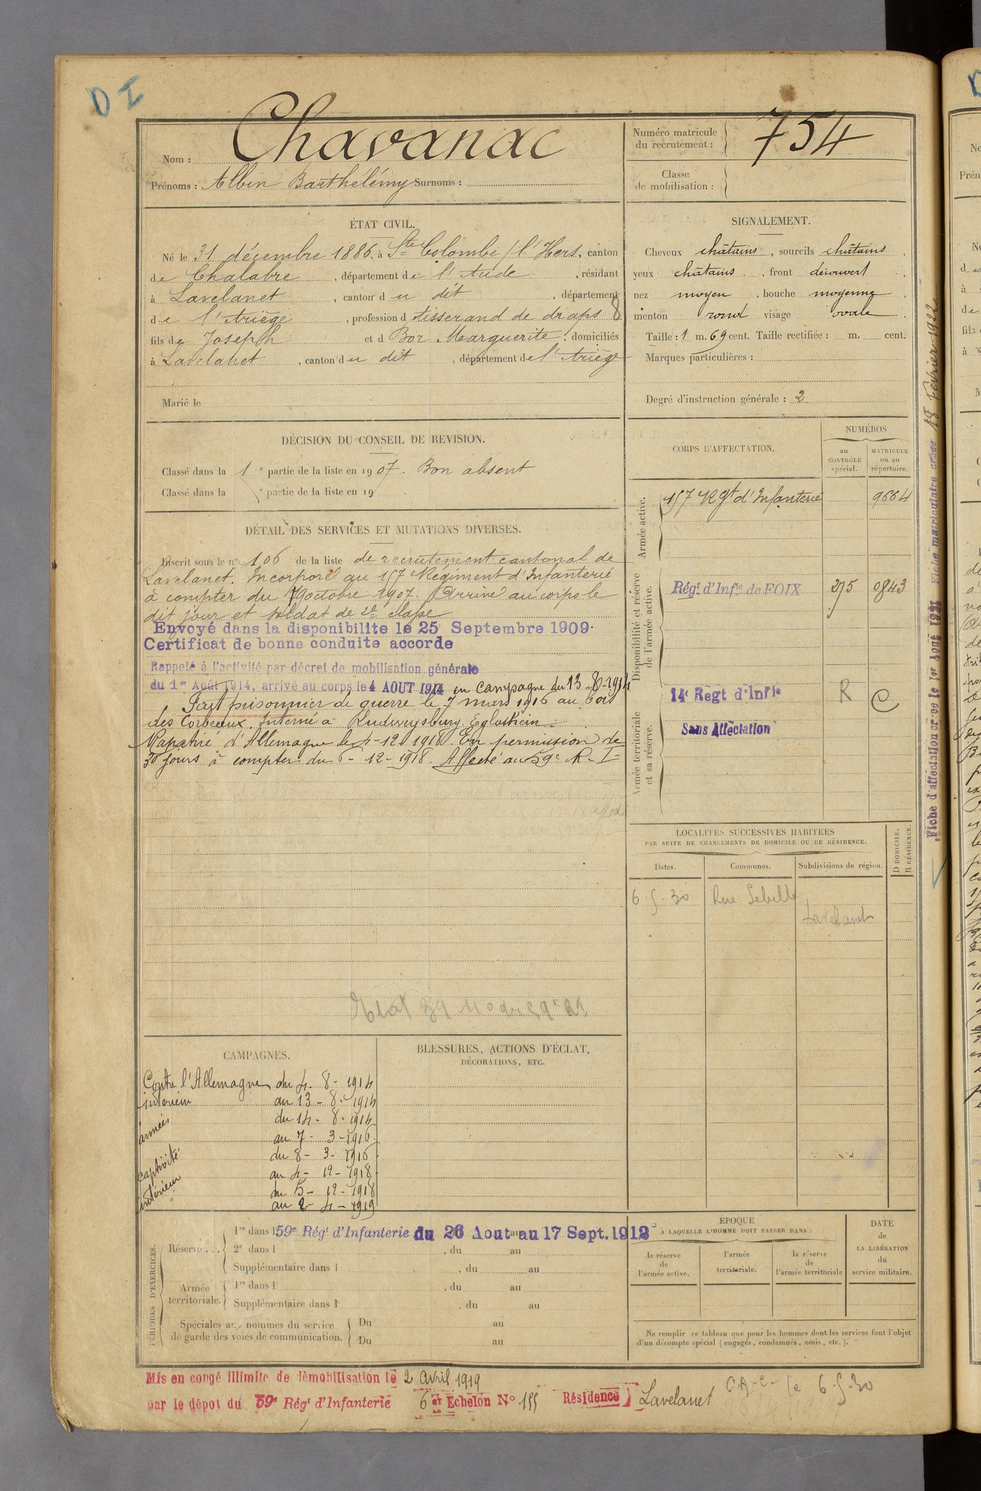 D I
Nom : Chavanac
Prénoms : Albin Barthélémy Surnoms :
Numéro matricule du recrutement : 754
Classe de mobilisation :
ÉTAT CIVIL.
Né le 31 décembre 1886, à Ste Colombe / l'Hers, canton
de Chalabre, département de l'Aude, résidant
à Lavelanet, canton du dit, département
de l'Ariège, profession d tisserand de draps 8
fils de Joseph et d Bor Marguerite, domiciliés
à Lavelanet, canton du dit, département de l'Ariège
Marié le
SIGNALEMENT.
Cheveux châtains, sourcils châtains,
yeux châtains, front découvert,
nez moyen, bouche moyenne,
menton rond visage ovale.
Taille : 1 m. 69 cent. Taille rectifiée : m. cent.
Marques particulières :
Degré d'instruction générale : 2
DÉCISION DU CONSEIL DE REVISION.
Classé dans la 1e partie de la liste en 1907. Bon absent
Classé dans la e partie de la liste en 19
DÉTAIL DES SERVICES ET MUTATIONS DIVERSES.
Inscrit sous le n° 106 de la liste de recrutement cantonal de
Lavelanet. Incorporé au 157 Régiment d'Infanterie
à compter du 7 octobre 1907. Arrivé au corps le
dit jour et soldat de 2e classe
Envoyé dans la disponibilité le 25 Septembre 1909.
Certificat de bonne conduite accordé
Rappelé à l'activité par décret de mobilisation générale
du 1er Août 1914, arrivé au corps le 4 AOUT 1914 en campagne du 13-8-1914
Fait prisonnier de guerre le 7 mars 1916 au bois
des Corbeaux. Interné à Ludwigsburg Eglosheim
Rapatrié d'Allemagne le 4-12 1918. En permission de
30 jours à compter du 6-12-1918. Affecté au 59e R-I
CORPS D'AFFECTATION.
NUMÉROS
au CONTRÔLE spécial.
MATRICULE ou au répertoire.
Armée active.
157 Rgt d'Infanterie 9664
Disponibilité et réserve de l'armée active.
Régt d'Infie de FOIX 275 0843
Armée territoriale et sa réserve.
14e Regt d'Infie R C
Sans Affectation
Fiche d'affectation créée le 1er Aout 1921 Fiche matriculaire créée 18 Février 1922
LOCALITÉS SUCCESSIVES HABITÉES
PAR SUITE DE CHANGEMENTS DE DOMICILE OU DE RÉSIDENCE.
Dates. Communes. Subdivisions de région. D DOMICILE. R RÉSIDENCE.
6-5-30 Rue
Lavelanet
CAMPAGNES.
Contre l'Allemagne du 4-8-1914
intérieur au 13-8-1914
armées du 14-8-1914
au 7-3-1916
captivité du 8-3-1916
au 4-12-1918
intérieur du 5-12-1918
au 2-4-1919
BLESSURES, ACTIONS D'ÉCLAT,
DÉCORATIONS, ETC.
PÉRIODES D'EXERCICES.
Réserve...
1re dans l 59e Régt d'Infanterie du 26 Aout au 17 Sept. 1912
2e dans l , du au
Supplémentaire dans l , du au
Armée territoriale.
1re dans l , du au
Supplémentaire dans l , du au
Spéciales aux hommes du service de garde des voies de communication.
Du au
Du au
EPOQUE
A LAQUELLE L'HOMME DOIT PASSER DANS :
la réserve de l'armée active.
l'armée territoriale.
la réserve de l'armée territoriale
DATE de LA LIBÉRATION du service militaire.
Ne remplir ce tableau que pour les hommes dont les services font l'objet
d'un décompte spécial (engagés, condamnés, omis, etc.).
Mis en congé illimité de démobilisation le 2 avril 1919
par le dépot du 59e Régt d'Infanterie 6e Echelon N° 155 Résidence Lavelanet
le 6-5-30